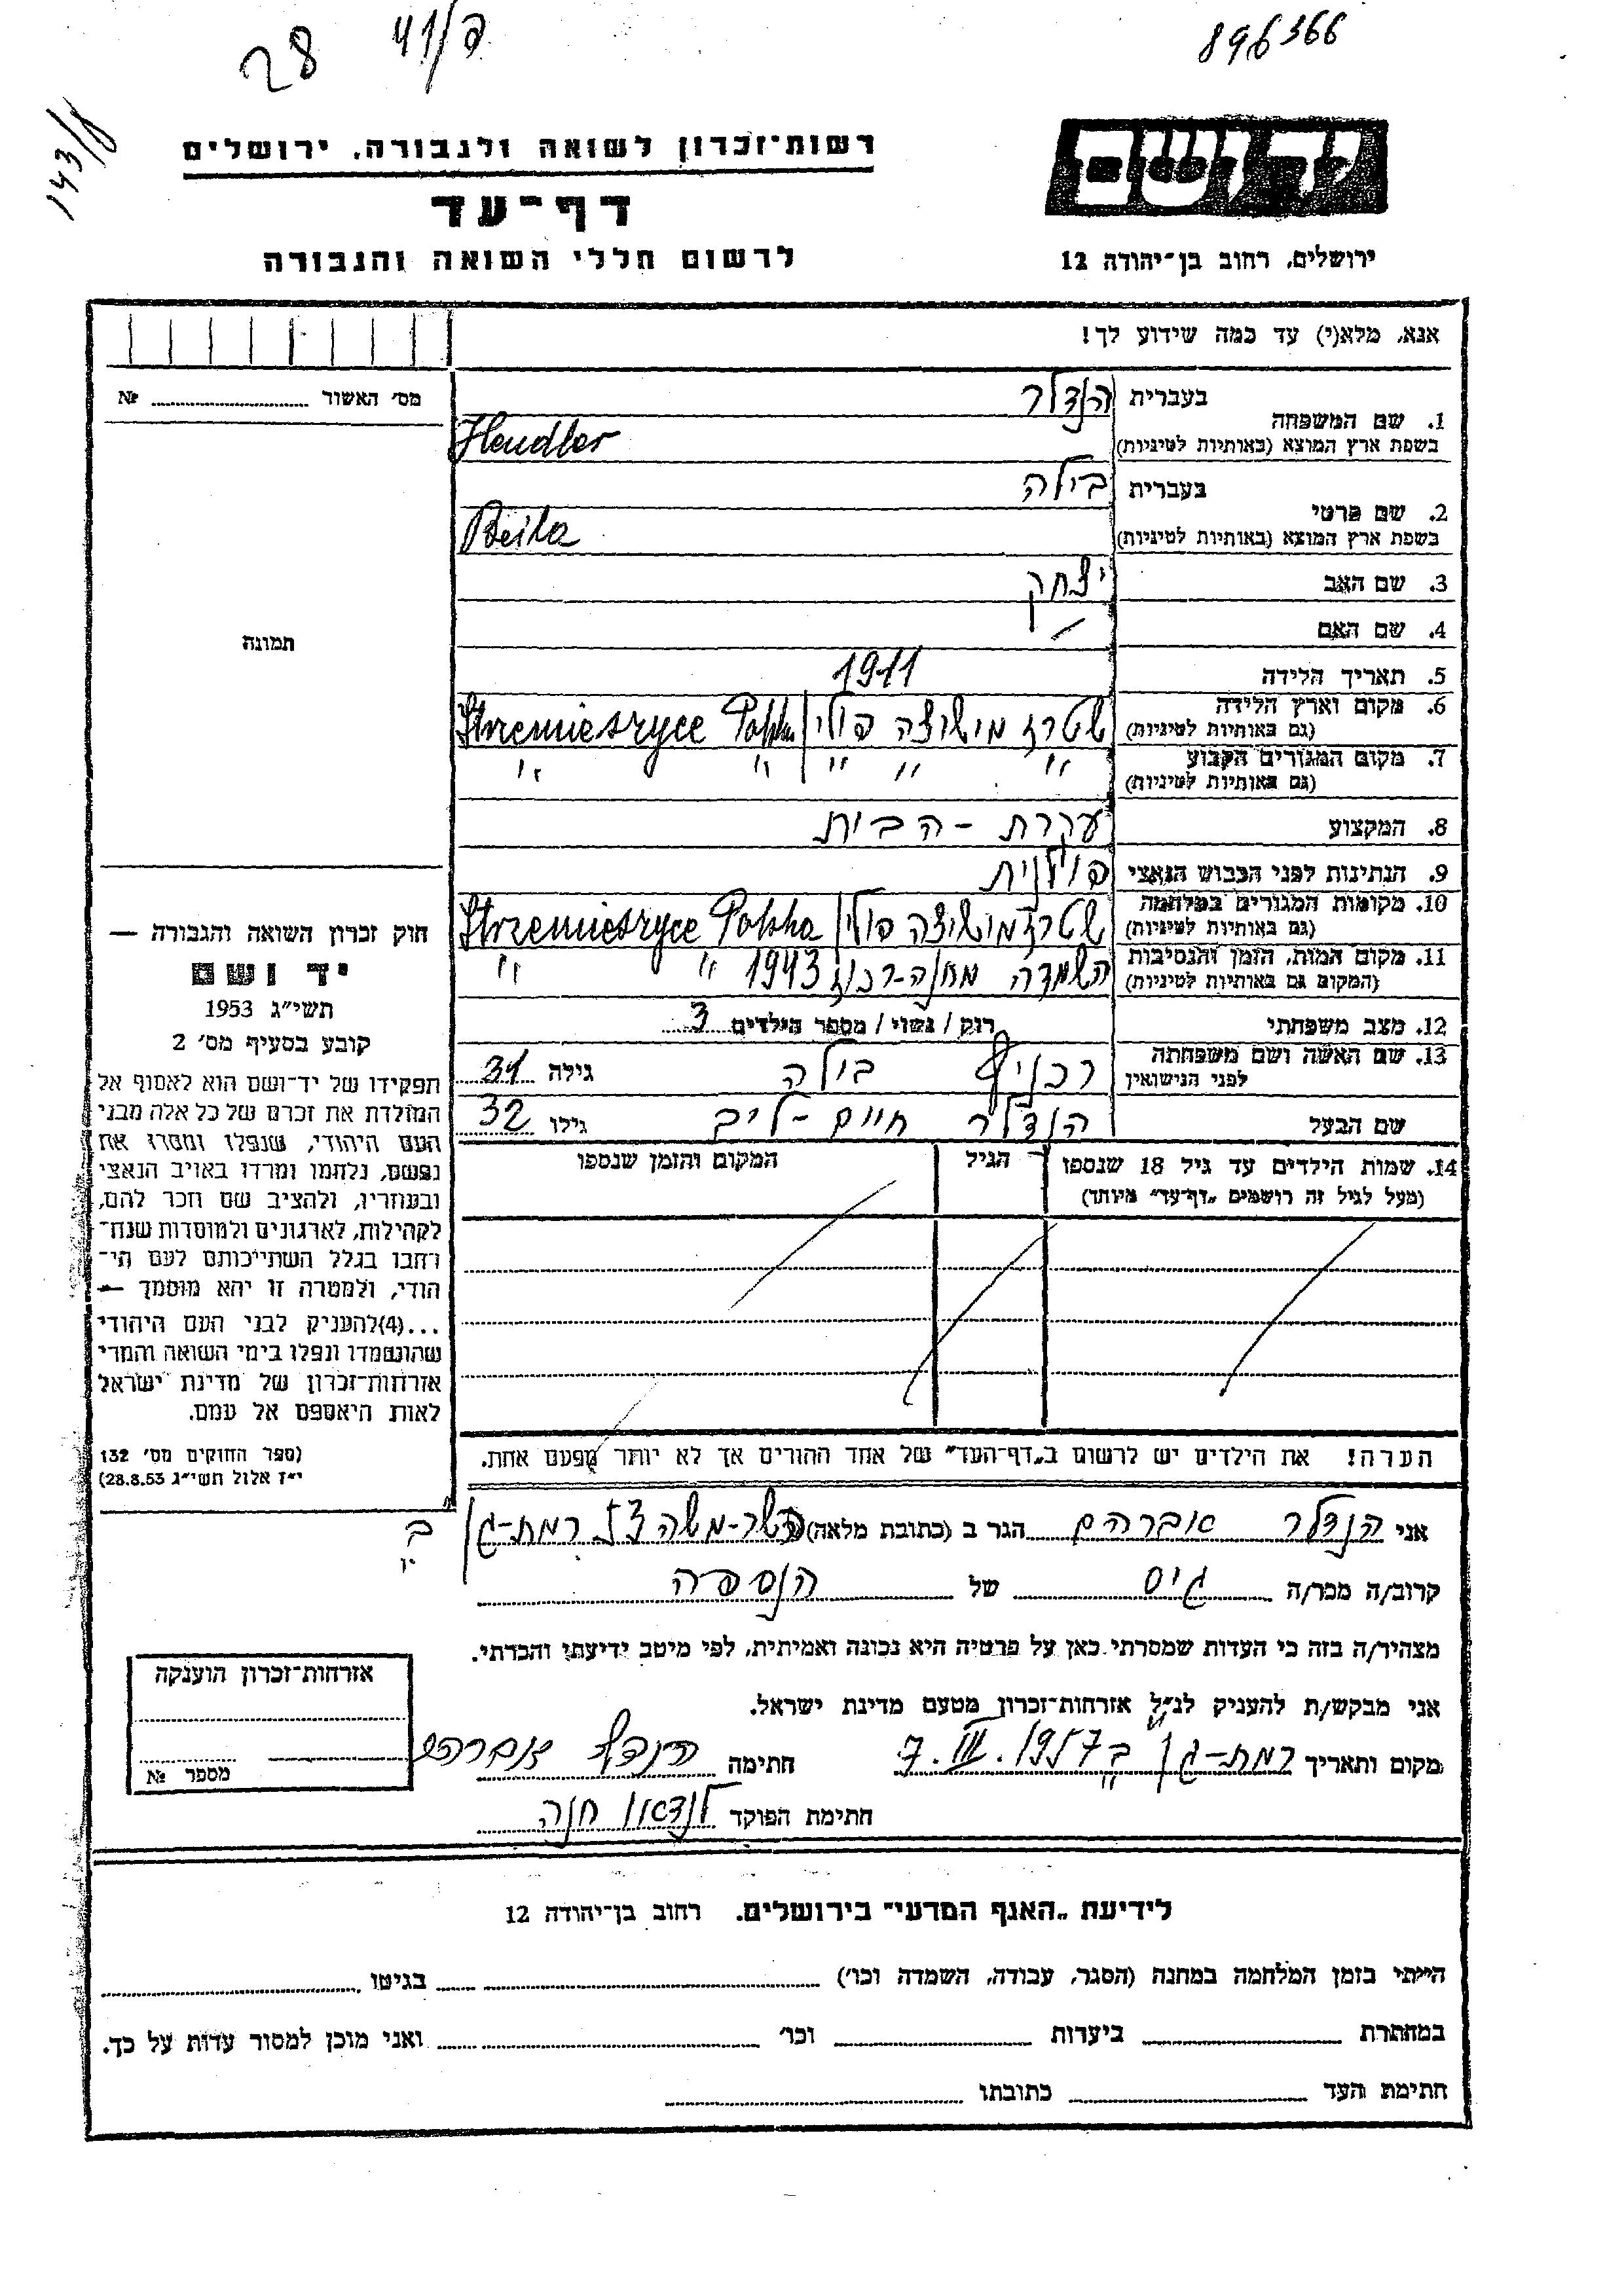 28
896366
רשות־זכרון לשואה ולגבורה, ירושלים
דף־עד
לרשום חללי השואה והגבורה
יד ושם
ירושלים, רחוב בן־יהודה 12
אנא, מלא(י) עד כמה שידוע לך!
מס׳ האשור № 
1. שם המשפחה בעברית הנדלר
בשפת ארץ המוצא (באותיות לטיניות) Hendler
2. שם פרטי בעברית בילה
בשפת ארץ המוצא (באותיות לטיניות) Beila
3. שם האב יצחק
4. שם האם
5. תאריך הלידה 1911
6. מקום וארץ הלידה (גם באותיות לטיניות) Strzemieszyce Polska
7. מקום המגורים הקבוע (גם באותיות לטיניות) " " " " "
8. המקצוע עקרת-הבית
9. הנתינות לפני הכבוש הנאצי פולנית
10. מקומות המגורים במלחמה (גם באותיות לטיניות) Strzemieszyce Polska
11. מקום המות, הזמן והנסיבות (המקום גם באותיות לטיניות) השמדה 1943 " "
12. מצב משפחתי רוק / נשוי / מספר הילדים 3
13. שם האשה ושם משפחתה לפני הנישואין בילה גילה 31
שם הבעל הנדלר חיים-ליב גילו 32
14. שמות הילדים עד גיל 18 שנספו
(מעל לגיל זה רושמים „דף־עד״ מיוחד)
הגיל
המקום והזמן שנספו
הערה! את הילדים יש לרשום ב„דף־העד״ של אחד ההורים אך לא יותר מפעם אחת.
תמונה
חוק זכרון השואה והגבורה —
יד ושם
תשי״ג 1953
קובע בסעיף מס׳ 2
תפקידו של יד־ושם הוא לאסוף אל
המולדת את זכרם של כל אלה מבני
העם היהודי, שנפלו ומסרו את
נפשם, נלחמו ומרדו באויב הנאצי
ובעוזריו, ולהציב שם וזכר להם,
לקהילות, לארגונים ולמוסדות שנח־
רחבו בגלל השתייכותם לעם הי־
הודי, ולמטרה זו יהא מוסמך —
...(4)להעניק לבני העם היהודי
שהושמדו ונפלו בימי השואה והמרי
אזרחות־זכרון של מדינת ישראל
לאות היאספם אל עמם.
(ספר החוקים מס׳ 132
י״ז אלול תשי״ג 28.8.53)
אני הנדלר אברהם הגר ב (כתובת מלאה) רמת-גן
קרוב/ה מכר/ה גיס של הנספה
מצהיר/ה בזה כי העדות שמסרתי כאן על פרטיה היא נכונה ואמיתית, לפי מיטב ידיעתי והכרתי.
אני מבקש/ת להעניק לנ״ל אזרחות־זכרון מטעם מדינת ישראל.
מקום ותאריך רמת-גן ב 7.III.1957 חתימה הנדלר אברהם
חתימת הפוקד לנדאו חנה
אזרחות־זכרון הוענקה
מספר №
לידיעת „האגף המדעי״ בירושלים. רחוב בן־יהודה 12
הייתי בזמן המלחמה במחנה (הסגר, עבודה, השמדה וכו׳) בגיטו
במחתרת ביערות וכו׳ ואני מוכן למסור עדות על כך.
חתימת העד כתובתו